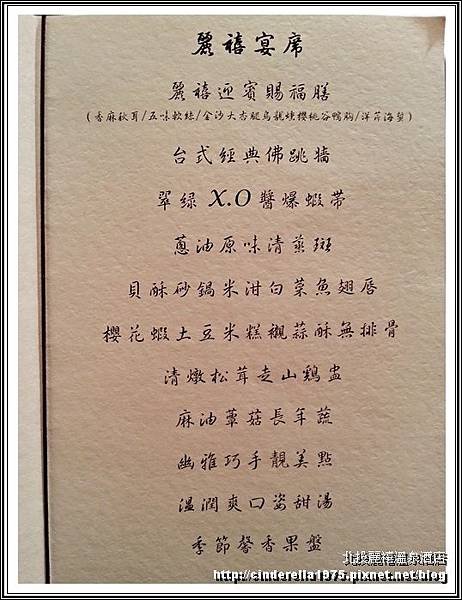 麗禧宴席
麗禧迎賓賜福膳
(香麻秋耳/五味軟絲/金沙大卷腿烏龍燻櫻桃谷鴨胸/洋芹海蜇)
台式經典佛跳牆
翠綠 X.O 醬爆蝦帶
蔥油原味清蒸斑
貝酥砂鍋米泔白菜魚翅唇
櫻花蝦土豆米糕襯蒜酥無排骨
清燉松茸走山鷄盅
麻油蕈菇長年蔬
幽雅巧手靚美點
溫潤爽口瓷甜湯
季節馨香果盤
北投麗禧溫泉酒店
http://cinderella1975.pixnet.net/blog